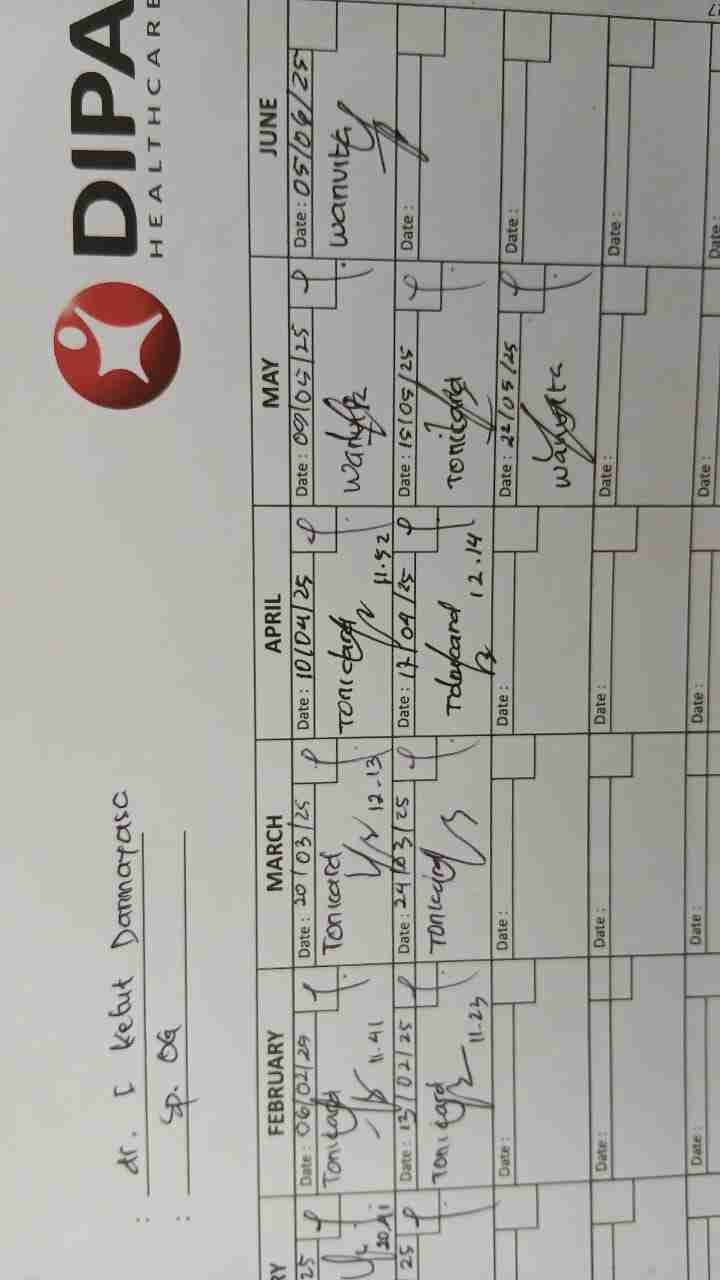 DIPA
HEALTHCARE
: dr. I Ketut Darmayasa
: Sp. OG
RY
FEBRUARY
MARCH
APRIL
MAY
JUNE
25
Date : 06/02/25
Date : 20/03/25
Date : 10/04/25
Date : 09/05/25
Date : 05/06/25
Tonicard
Tonicard
Tonicard
Wanvita
20.41
11.41
12.13
11.52
25
Date : 13/02/25
Date : 24/03/25
Date : 17/04/25
Date : 15/05/25
Date :
Tonicard
Tonicard
Tonicard
11.23
12.14
Date :
Date :
Date :
Date : 22/05/25
Date :
Wanvita
Date :
Date :
Date :
Date :
Date :
Date :
Date :
Date :
Date :
Date :